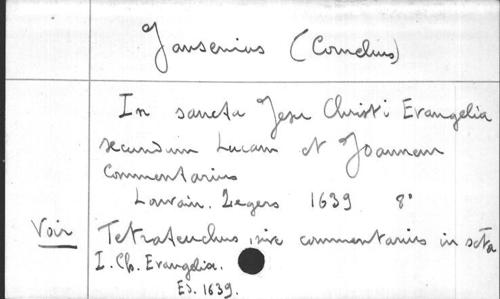 Jansenius (Cornelius)
In sancta Jesu Christi Evangelia
secundum Lucam et Joannem
Commentarius
Louvain. Zegers 1639 8°
Voir Tetrateuchus, sive commentarius in scta
I. Ch. Evangelia.
Ed. 1639.